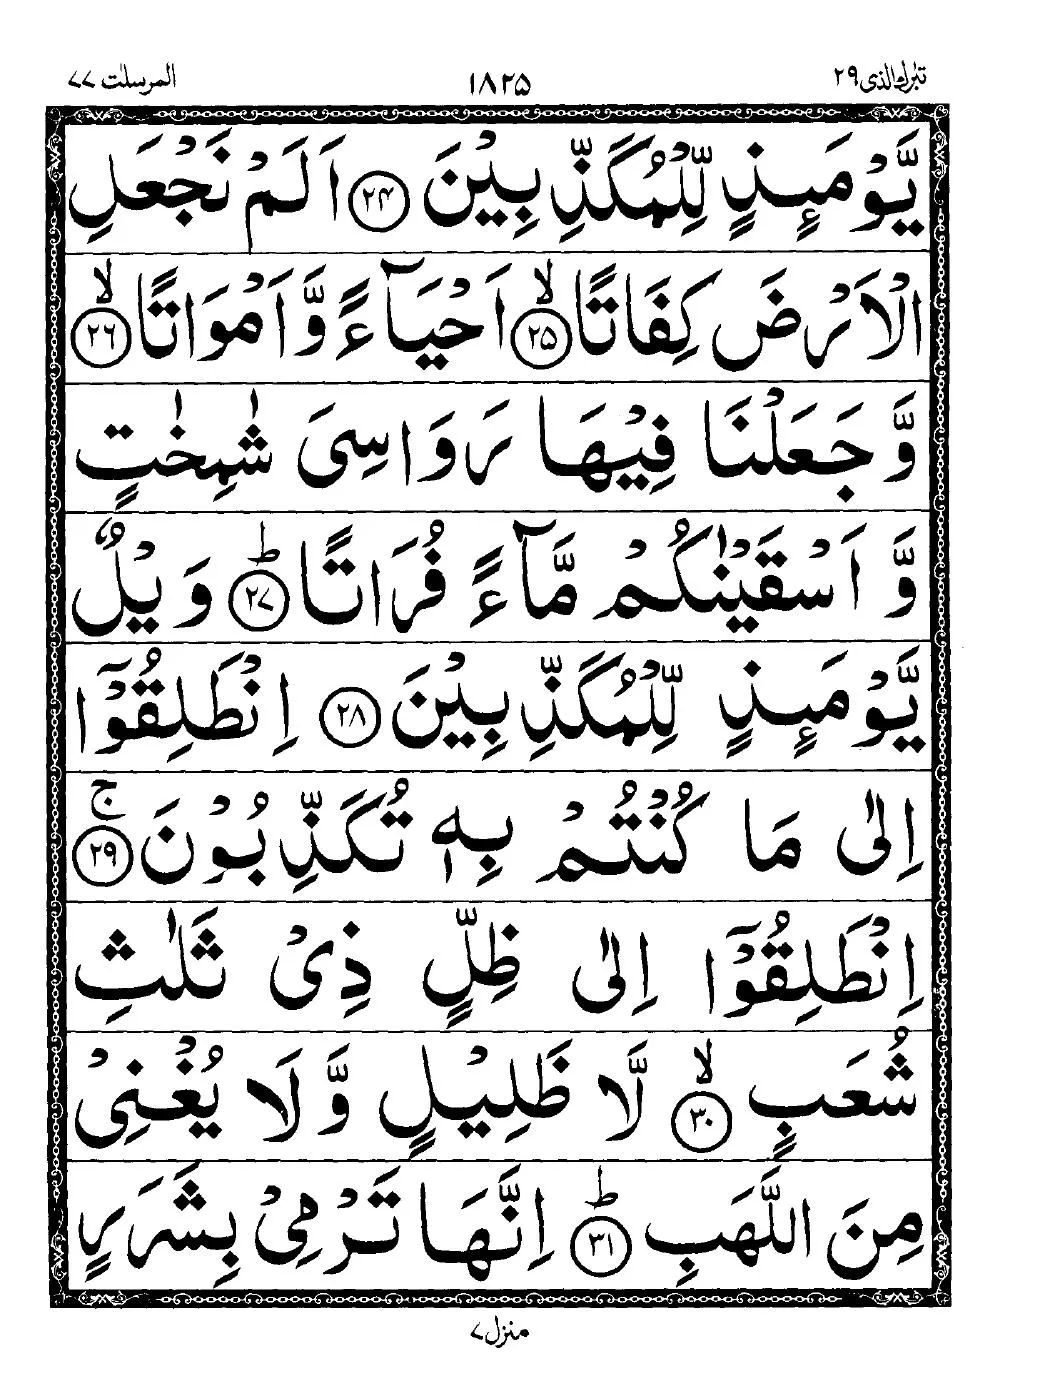 تبٰرك الذی ۲۹ ۱۸۲۵ المرسلٰت ۷۷
يَّوْمَئِذٍ لِّلْمُكَذِّبِيْنَ ۲۴ اَلَمْ نَجْعَلِ
الْاَرْضَ كِفَاتًا ۙ ۲۵ اَحْيَآءً وَّاَمْوَاتًا ۙ ۲۶
وَّجَعَلْنَا فِيْهَا رَوَاسِىَ شٰمِخٰتٍ
وَّاَسْقَيْنٰكُمْ مَّآءً فُرَاتًا ؕ ۲۷ وَيْلٌ
يَّوْمَئِذٍ لِّلْمُكَذِّبِيْنَ ۲۸ اِنْطَلِقُوْٓا
اِلٰى مَا كُنْتُمْ بِهٖ تُكَذِّبُوْنَ ۚ ۲۹
اِنْطَلِقُوْٓا اِلٰى ظِلٍّ ذِىْ ثَلٰثِ
شُعَبٍ ۙ ۳۰ لَّا ظَلِيْلٍ وَّلَا يُغْنِىْ
مِنَ اللَّهَبِ ؕ ۳۱ اِنَّهَا تَرْمِىْ بِشَرَرٍ
منزل ۷